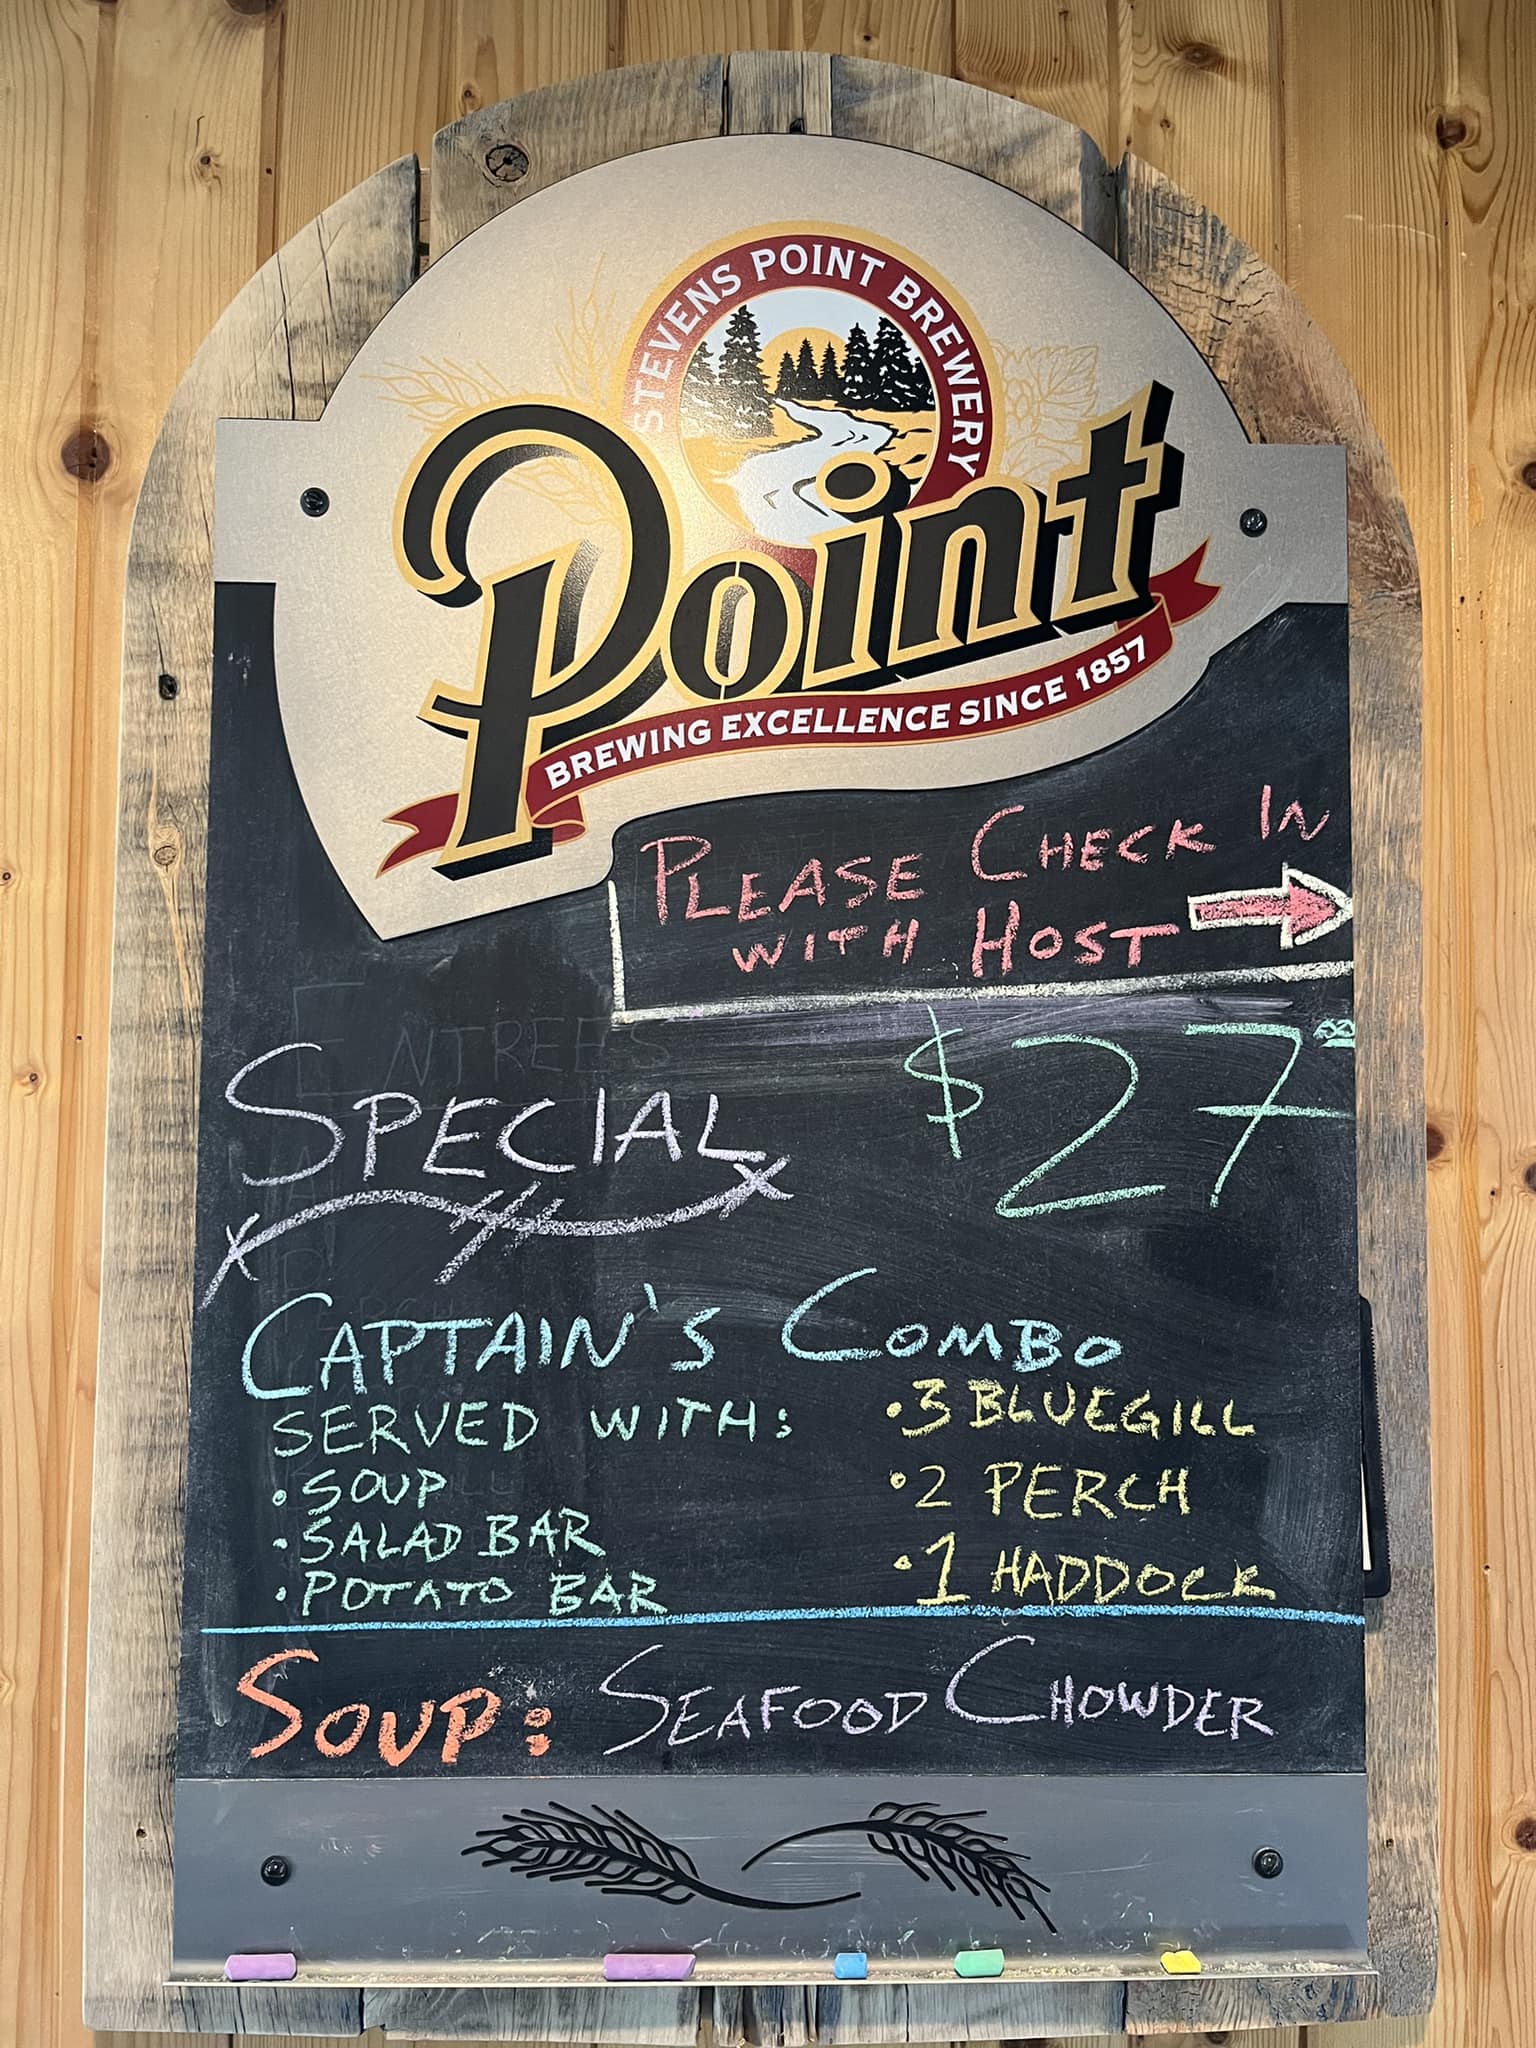 STEVENS POINT BREWERY
Point
BREWING EXCELLENCE SINCE 1857
PLEASE CHECK IN
WITH HOST
ENTREES
SPECIAL
$27
CAPTAIN'S COMBO
SERVED WITH:
• SOUP
• SALAD BAR
• POTATO BAR
• 3 BLUEGILL
• 2 PERCH
• 1 HADDOCK
SOUP: SEAFOOD CHOWDER